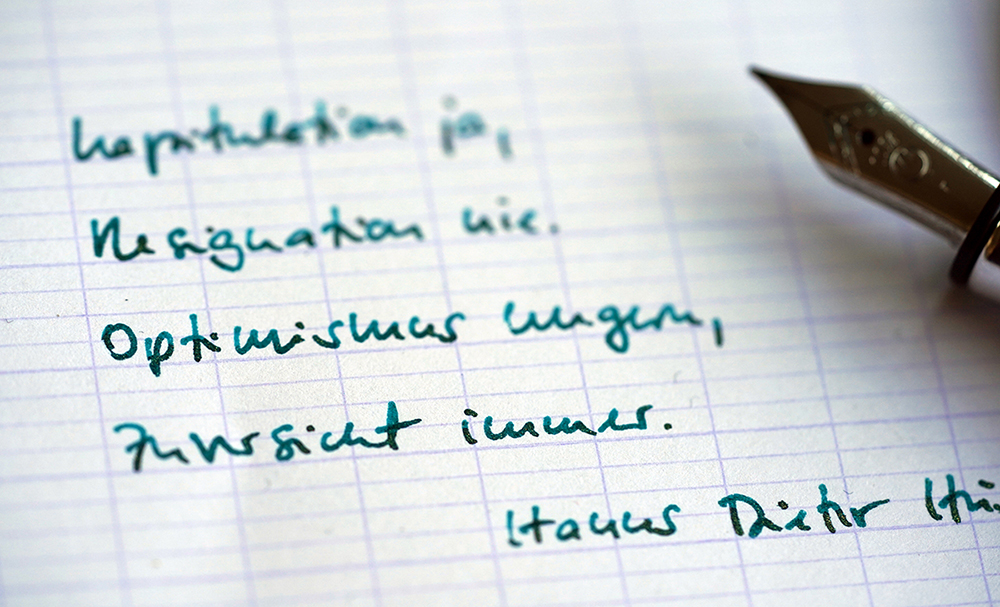 Kapitulation ja,
Resignation nie.
Optimismus ungern,
Zuversicht immer.
Hanns Dieter Hü